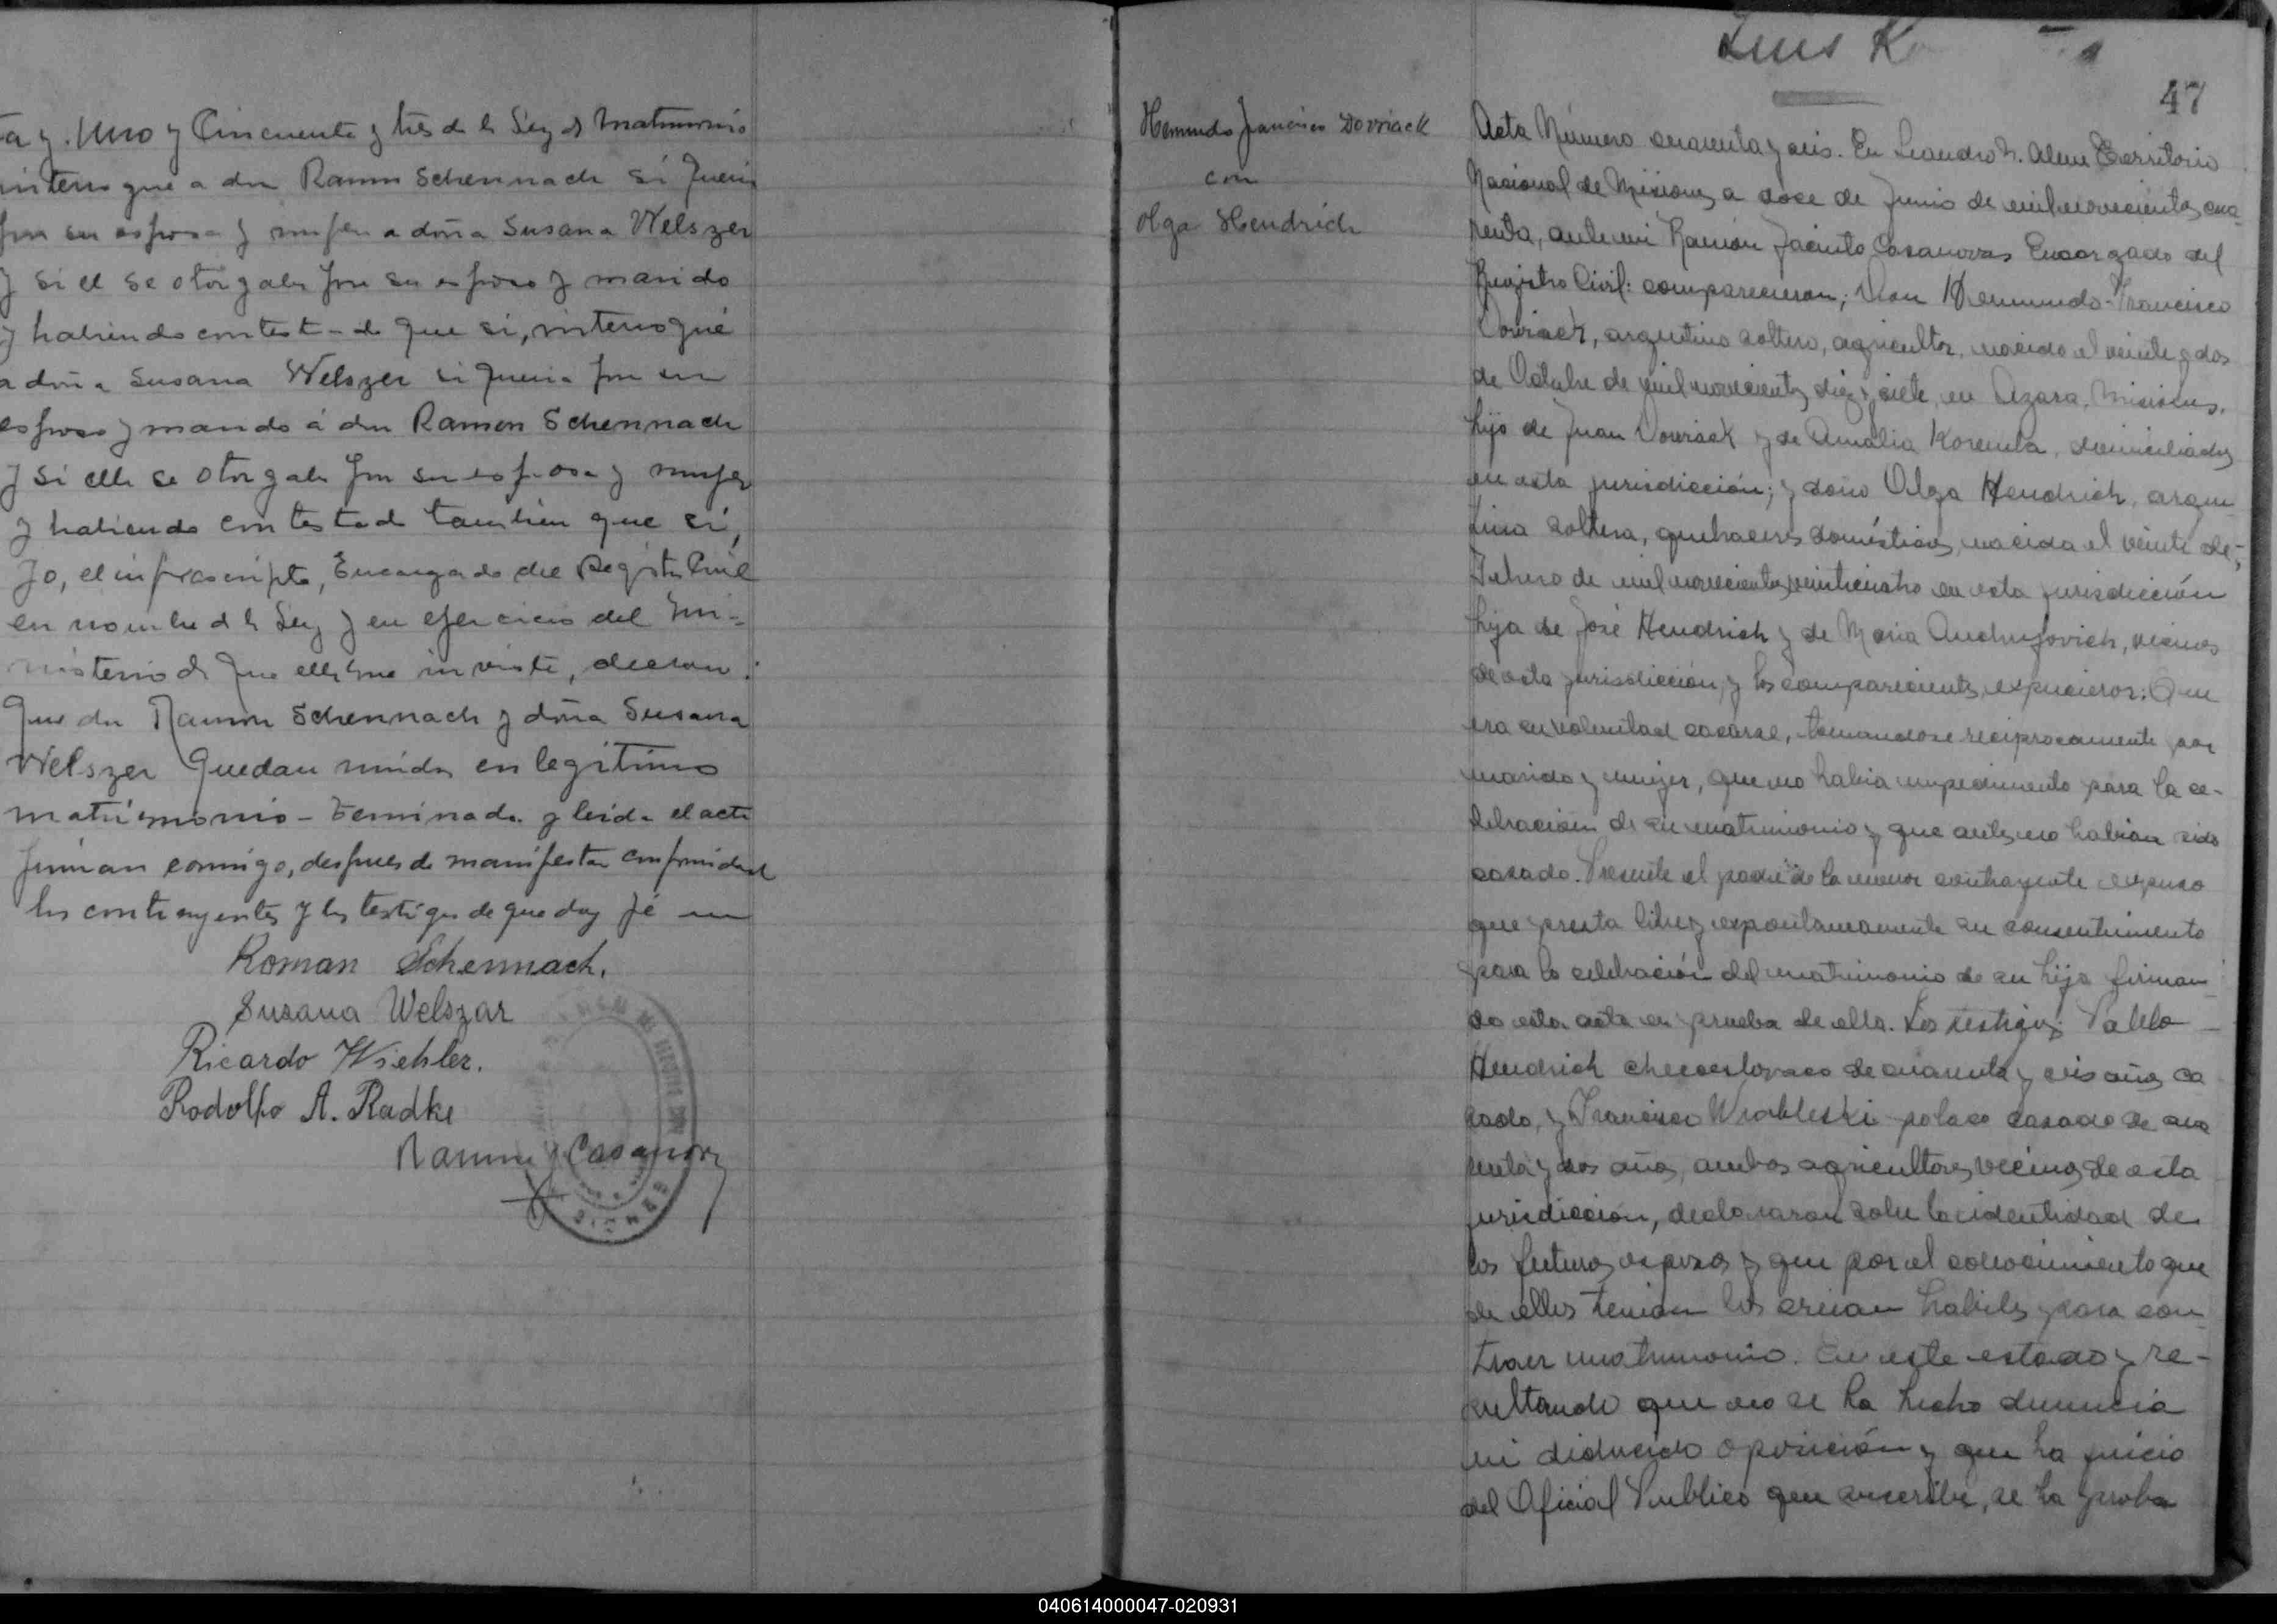 a y Uno y Cincuenta y tres de la Ley de Matrimonio
interrogué a don Ramon Schennach si queria
por su esposa y mujer a doña Susana Welszer
y si el se otorgaba por su esposo y marido
y habiendo contestado que si, interrogué
a doña Susana Welszer si queria por su
esposo y marido á don Ramon Schennach
y si ella se otorgaba por su esposa y mujer
y habiendo contestado tambien que si,
yo, el infrascripto, Encargado del Registro Civil
en nombre de la Ley y en ejercicio del Mi-
nisterio de que ella me inviste, declaro:
Que don Ramon Schennach y doña Susana
Welszer Quedan unidos en legitimo
matrimonio - Terminada y leida el acta
firman conmigo, despues de manifestar conformidad
los contrayentes y los testigos de que doy fé
Roman Schennach.
Susana Welszar
Ricardo Wichler.
Rodolfo A. Radke
Ramon J Casanovas
Luis K
47
Hemundo Francisco Dovriack
con
Olga Hendrich
Acta Número cuarenta y seis. En Leandro N. Alem Territorio
Nacional de Misiones a doce de Junio de mil novecientos cua-
renta, ante mi Ramón Jacinto Casanovas Encargado del
Registro Civil: comparecieron; Don Hemundo Francisco
Dovriack, argentino soltero, agricultor, nacido el veinte y dos
de Octubre de mil novecientos diez y siete, en Azara, Misiones,
hijo de Juan Dovriack y de Amalia Korenta, domiciliados
en esta jurisdicción; y doña Olga Hendrich, argen-
tina soltera, quehaceres domésticos, nacida el veinte de
Febrero de mil novecientos veinticuatro en esta jurisdicción
hija de José Hendrich y de Maria Andrujovich, vecinos
de esta jurisdicción, y los comparecientes expucieron: Que
era su voluntad casarse, tomandose reciprocamente por
marido y mujer, que no habia impedimento para la ce-
lebración de su matrimonio y que antes no habian sido
casado. Presente el padre de la menor contrayente expuso
que presta libre y expontaneamente su consentimiento
para la celebración del matrimonio de su hija firman-
do esta acta en prueba de ello. Los testigos: Pablo
Hendrich checoeslovaco de cuarenta y seis años, ca
sado, y Francisco Wrobleski polaco casado de cua
renta y dos años, ambos agricultores, vecinos de esta
jurisdicción, declararon sobre la identidad de
los futuros esposos y que por el conocimiento que
de ellos tenian los creian habiles para con-
traer matrimonio. En este estado y re-
sultando que no se ha hecho denuncia
ni diducido oposición y que ha juicio
del Oficial Publico que suscribe, se ha proba
040614000047-020931